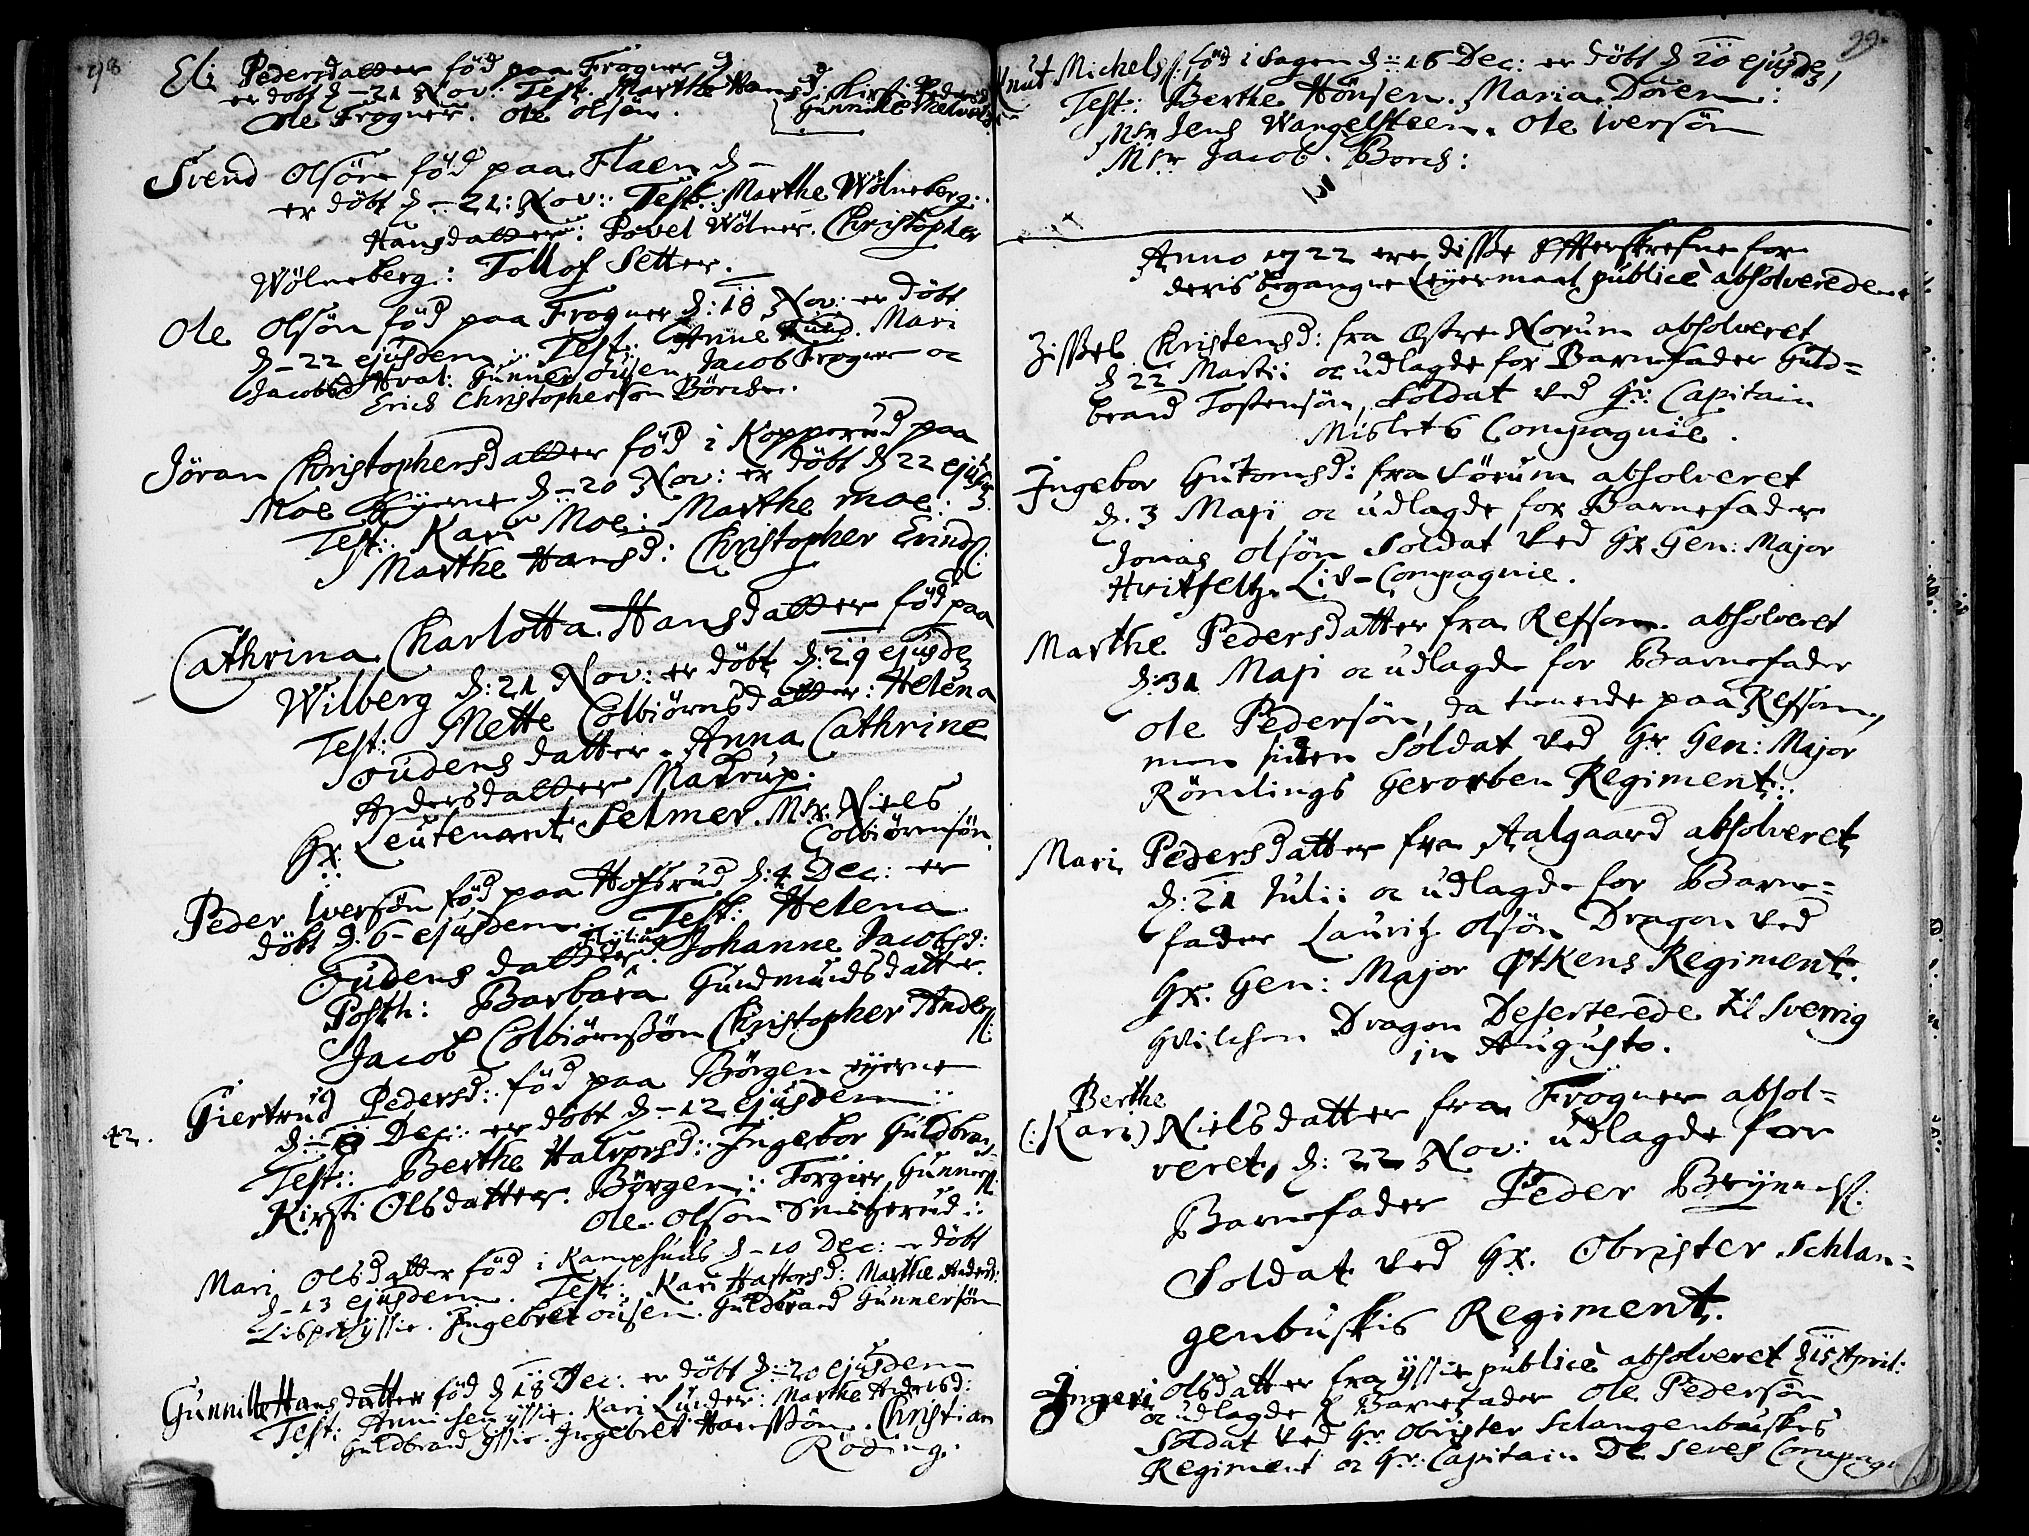 98
Eli Pedersdatter föd paa Frogner d
er döbt d - 21 Nov: Test. Marthe Hansd: Kirsti Pedersd
Ole Frogner. Ole Olsön. Gunnild
Svend Olsön föd paa Flaen d -
er döbt d - 21: Nov: Test: Marthe Wölneberg:
Hansdatter: Povel Wölner. Christopher
Wölneberg: Tollof Setter.
Ole Olsön föd paa Frogner d: 18 Nov: er döbt
d - 22 ejusdem. Test: Anne Mari
Jacobsd Gunner Jacob Frogner oc
Erich Christophersön Börcke.
Jöran Christophersdatter föd i Kopperud paa
Moe Eyerne d - 20 Nov: er döbt d 22 ejusd
Test: Kari Moe: Marthe Moe:
Marthe Hansd: Christopher Erinds:
Cathrina Charlotta Hansdatter föd paa
Wilberg d: 21 Nov: er döbt d: 29 ejusde
Test: Mette Colbiörnsdatter: Helena
Oudensdatter. Anna Cathrine
Andersdatter Matrup.
Hr: Leutenant Selmer. Msr. Niels
Colbiörnsön.
Peder Iversön föd paa Hofsrud d: 4 Dec: er
döbt d. 6 - ejusdem. Test: Helena
Oudens datter. Johanne Jacobsd:
Posth: Barbara Gudmundsdatter.
Jacob Colbiörnssön Christopher Anders:
42. Giertrud Pedersd: föd paa Börgen eyerne
d - 8 Dec: er döbt d - 12 ejusdem:
Test: Berthe Halvorsd: Ingebor Guldbran
Kirsti Olsdatter. Börgen: Torgier Gunners:
Ole Olsön
Mari Olsdatter föd i Kamphuus d - 10 Dec: er döbt
d - 13 ejusdem. Test: Kari Marthe Anders:
Lisbet yssie. Ingebret ousen. Guldbrand Gunnersön
Gunnild Hansdatter föd d 18 Dec: er döbt d: 20 ejusdem
Test: Annichen yssie. Kari Lunder: Marthe Andersd:
Guldbrand yssie. Ingebret Hanssön. Christian
Röding.
99.
Knut Michels: föd i Sagen d: 16 Dec: er döbt d 20 ejusde
Test: Berthe Hönsen. Maria Doren:
Msr Jens Wangelsteen. Ole Iversön
Msr Jacob Borch:
Anno 1722 ere disse Effterskrefne for
deris begangne Leyermaal publicè absolverede
Zissel Christensd: fra Østre Norum absolveret
d 22 Martii oc udlagde for Barnefader Guld=
brand Tostensön, Soldat ved Hr: Capitain
Compagnie.
Ingebor Gutormsd: fra Sörum absolveret
d. 3 Maji oc udlagde for Barnefader
Jonas Olsön Soldat ved Hr Gen: Major
Hvitfeltz Liv-Compagnie.
Marthe Pedersdatter fra Refsom absolveret
d: 31 Maji oc udlagde for Barnefader
Ole Pedersön, da tienende paa Refsom,
men siden Soldat ved Hr. Gen: Major
Römlings Gevorben Regiment:
Mari Pedersdatter fra Aalgaard absolveret
d: 21 Julii oc udlagde for Barne=
fader Lauritz Olsön Dragon ved
Hr. Gen: Major Øtkens Regiment.
Hvilchen Dragon Deserterede til Sverrig
in Augusto.
Berthe
(:Kari) Nielsdatter fra Frogner absol=
veret d: 22 Nov: udlagde for
Barnefader Peder Brynils:
Soldat ved Hr. Obrister Schlan=
genbuskis Regiment.
Ingeri Olsdatter fra yssie publicè absolveret d: 15 April:
oc udlagde f Barnefader Ole Pedersön
Soldat ved Hr. Obrister Slangenbuskes
Regiment oc Hr: Capitain De Seves Compagn